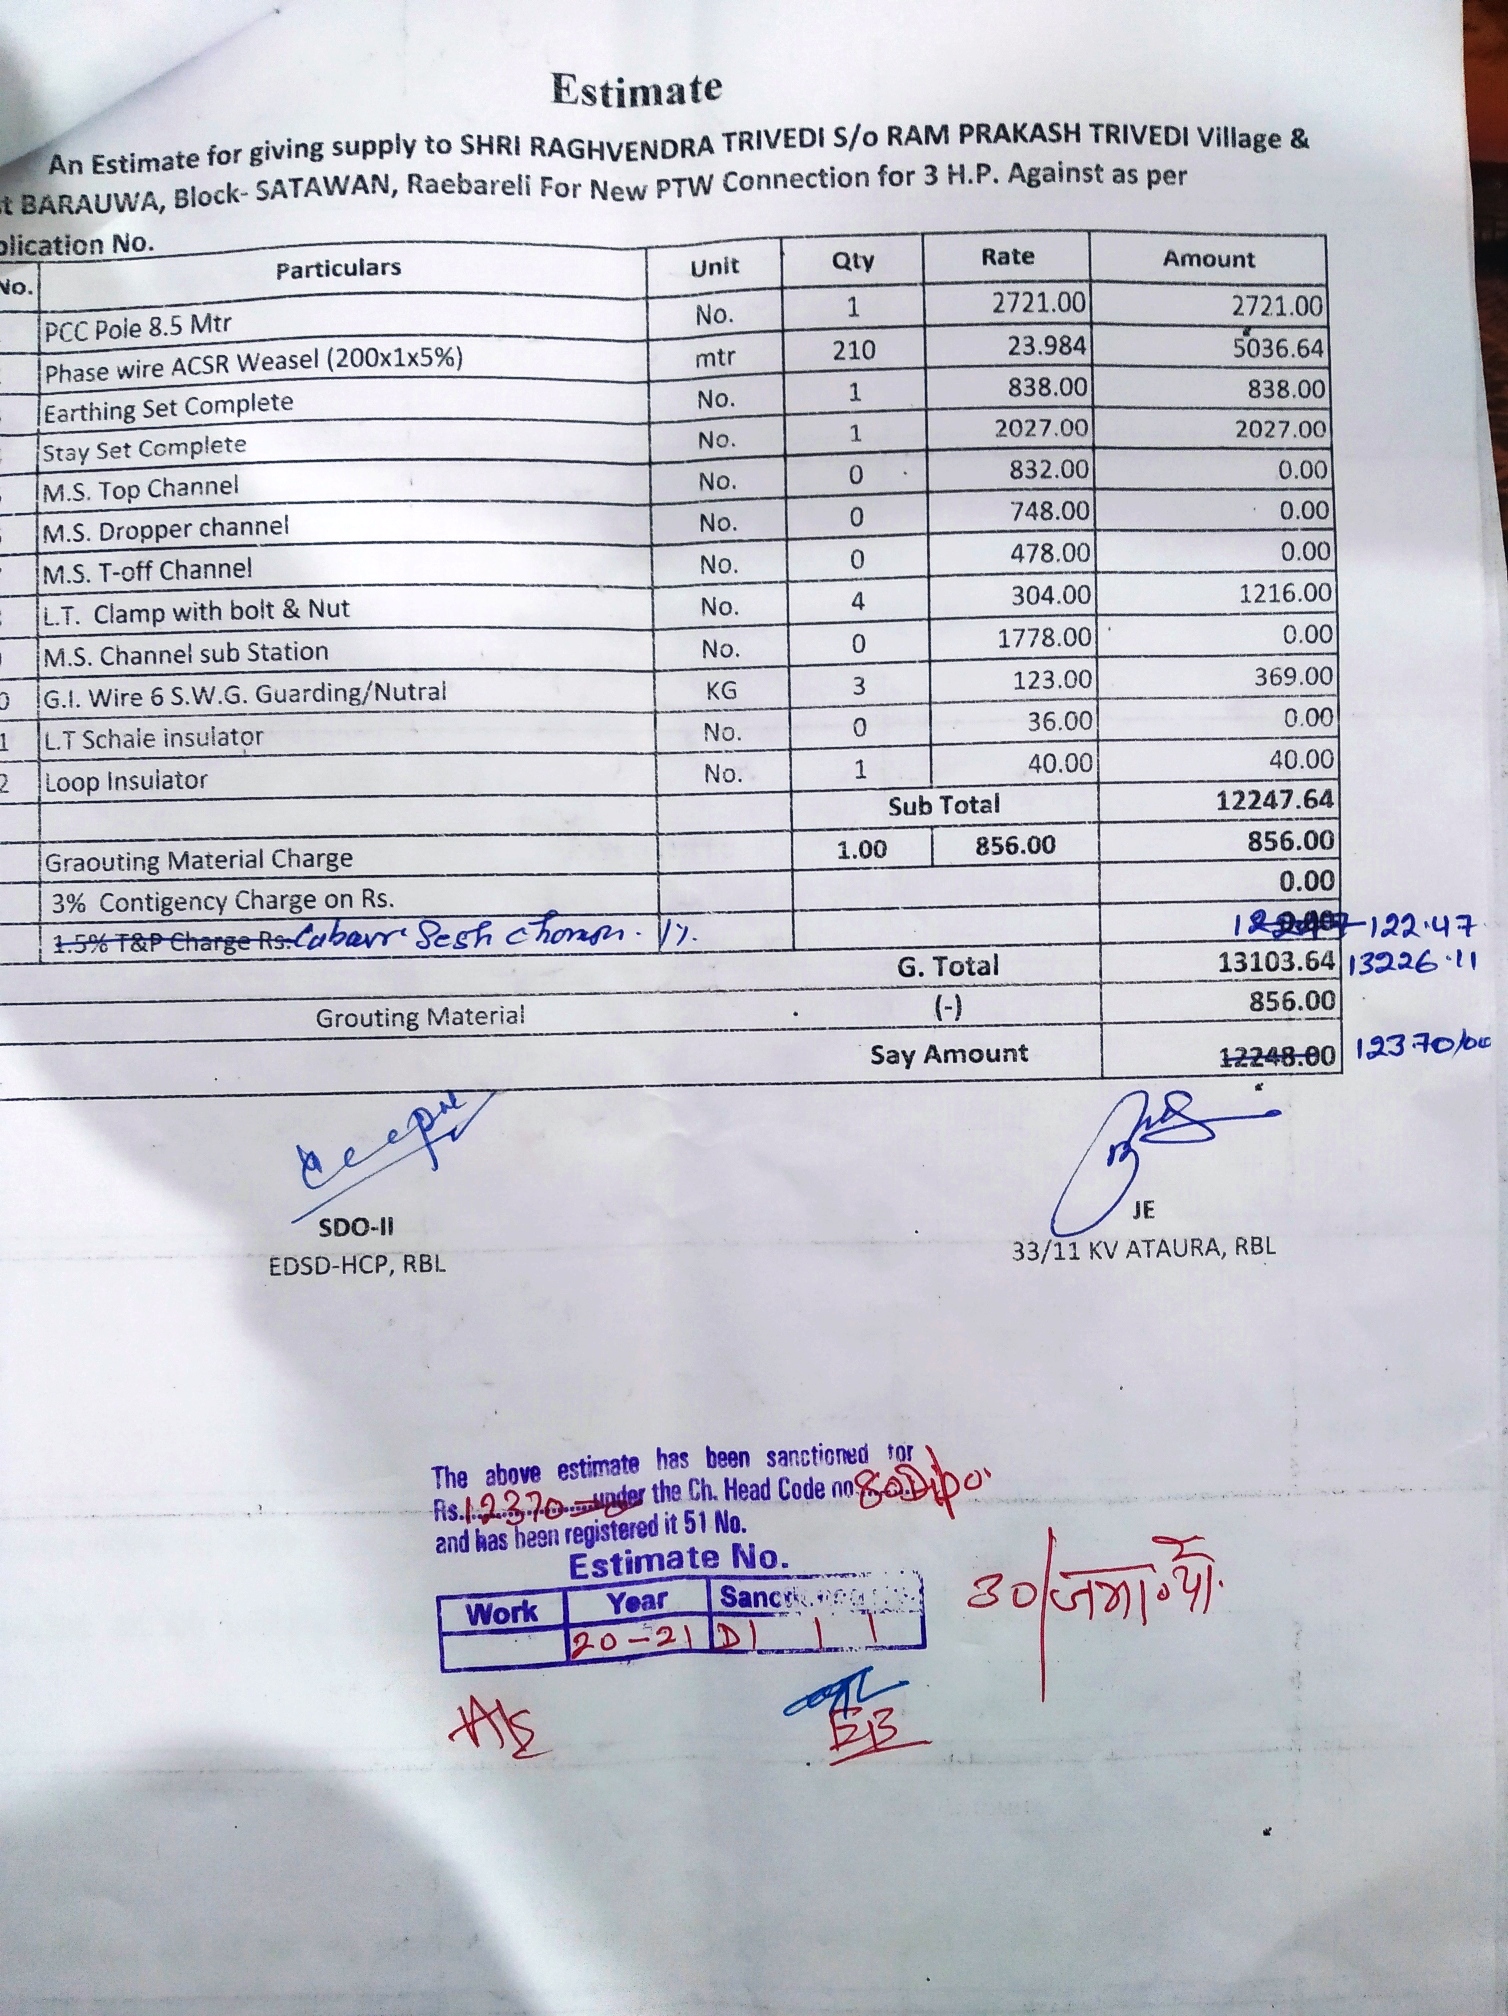 Estimate
An Estimate for giving supply to SHRI RAGHVENDRA TRIVEDI S/o RAM PRAKASH TRIVEDI Village &
t BARAUWA, Block- SATAWAN, Raebareli For New PTW Connection for 3 H.P. Against as per
plication No.
No. Particulars Unit Qty Rate Amount
PCC Pole 8.5 Mtr No. 1 2721.00 2721.00
Phase wire ACSR Weasel (200x1x5%) mtr 210 23.984 5036.64
Earthing Set Complete No. 1 838.00 838.00
Stay Set Complete No. 1 2027.00 2027.00
M.S. Top Channel No. 0 832.00 0.00
M.S. Dropper channel No. 0 748.00 0.00
M.S. T-off Channel No. 0 478.00 0.00
L.T. Clamp with bolt & Nut No. 4 304.00 1216.00
M.S. Channel sub Station No. 0 1778.00 0.00
0 G.I. Wire 6 S.W.G. Guarding/Nutral KG 3 123.00 369.00
1 L.T Schale insulator No. 0 36.00 0.00
2 Loop Insulator No. 1 40.00 40.00
Sub Total 12247.64
Graouting Material Charge 1.00 856.00 856.00
3% Contigency Charge on Rs. 0.00
1.5% T&P Charge Rs. 1%. 0.00 122.47
G. Total 13103.64 13226.11
Grouting Material (-) 856.00
Say Amount 12248.00 12370/00
SDO-II
EDSD-HCP, RBL
JE
33/11 KV ATAURA, RBL
The above estimate has been sanctioned for
Rs. 12370 under the Ch. Head Code no.
and has been registered it 51 No.
Estimate No.
Work Year Sanc
20-21 D1 1 1
EB